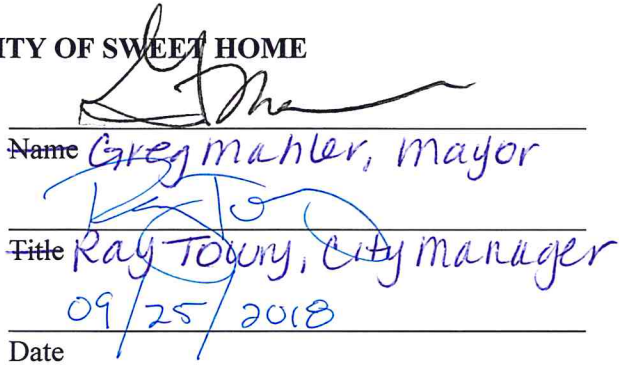 ITY OF SWEET HOME
Name Greg Mahler, Mayor
Title Ray Towry, City Manager
09/25/2018
Date